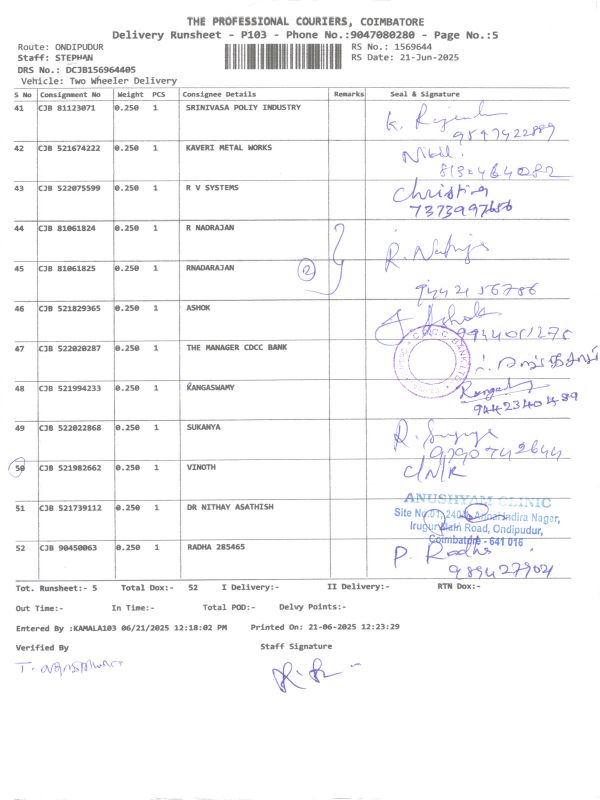 THE PROFESSIONAL COURIERS, COIMBATORE
Delivery Runsheet - P103 - Phone No.:9047080280 - Page No.:5
Route: ONDIPUDUR RS No.: 1569644
Staff: STEPHAN RS Date: 21-Jun-2025
DRS No.: DCJB156964405
Vehicle: Two Wheeler Delivery
S No Consignment No Weight PCS Consignee Details Remarks Seal & Signature
41 CJB 81123071 0.250 1 SRINIVASA POLIY INDUSTRY K.
42 CJB 521674222 0.250 1 KAVERI METAL WORKS
43 CJB 522075599 0.250 1 R V SYSTEMS
44 CJB 81061824 0.250 1 R NADRAJAN
45 CJB 81061825 0.250 1 RNADARAJAN 2
46 CJB 521829365 0.250 1 ASHOK Ashok
47 CJB 522020287 0.250 1 THE MANAGER CDCC BANK
48 CJB 521994233 0.250 1 RANGASWAMY
9442340489
49 CJB 522022868 0.250 1 SUKANYA
50 CJB 521982662 0.250 1 VINOTH C/N/R
51 CJB 521739112 0.250 1 DR NITHAY ASATHISH ANUSHYAM CLINIC
Indira Nagar,
Road, Ondipudur,
Coimbatore - 641 016
52 CJB 90450063 0.250 1 RADHA 285465 P. Radha
Tot. Runsheet:- 5 Total Dox:- 52 I Delivery:- II Delivery:- RTN Dox:-
Out Time:- In Time:- Total POD:- Delvy Points:-
Entered By :KAMALA103 06/21/2025 12:18:02 PM Printed On: 21-06-2025 12:23:29
Verified By Staff Signature